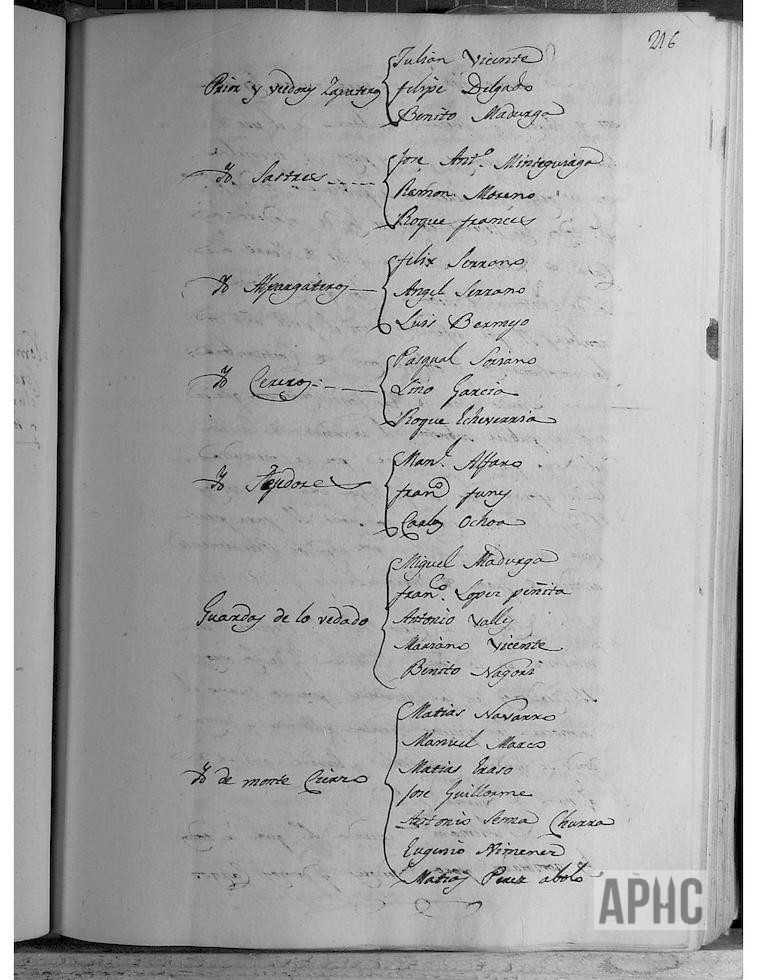 216
Prior y veedores Zapateros
Julian Vicente
Felipe Delgado
Benito Madurga
Yd. Sastres
Jose Ant.º Minteguiaga
Ramon Moreno
Roque frances
Yd Alpargateros
felix Serrano
Angel Serrano
Luis Bermejo
Yd Cereros
Pasqual Soriano
Lino Garcia
Roque Echeverria
Yd Tejedores
Man.l Alfaro
fran.co funes
Carlos Ochoa
Guardas de lo vedado
Miguel Madurga
fran.co Lopez peñita
Antonio Valles
Mariano Vicente
Benito Nagori
Yd de monte Cierzo
Matias Navarro
Manuel Marco
Matias Eraso
Jose Guillorme
Antonio Sema Churra
Eugenio Ximenez
Matias Perez abolo
APHC